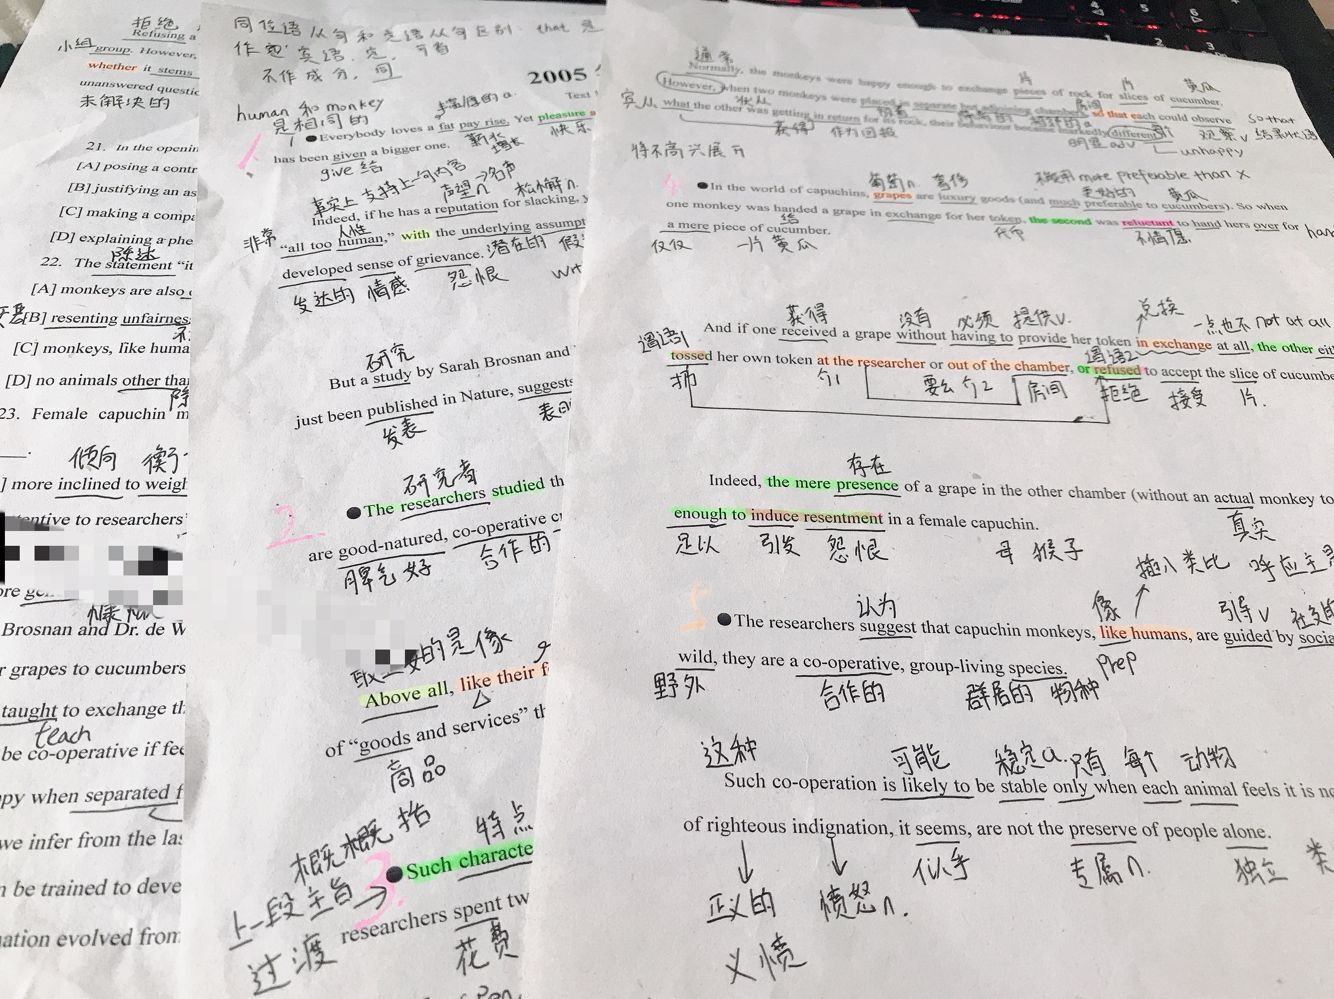 拒绝
Refusing a
小组
group. However,
whether it stems
unanswered questi
未解决的
21. In the openin
[A] posing a contr
[B] justifying an as
[C] making a compa
[D] explaining a phe
陈述
22. The statement “it
[A] monkeys are also
[B] resenting unfairnes
[C] monkeys, like huma
[D] no animals other tha
23. Female capuchin m
倾向
] more inclined to weigl
entive to researchers’
Brosnan and Dr. de W
r grapes to cucumbers
taught to exchange th
teach
be co-operative if fee
py when separated f
we infer from the las
n be trained to deve
nation evolved from
同位语从句和定语从句区别: that 是
不作成分, 同
2005
Text
human 和 monkey
是相同的
1
●Everybody loves a fat pay rise. Yet pleasure a
薪水 快乐
has been given a bigger one. 增长
give 给
事实上 支持上句内容
声望 n 松懈 n.
Indeed, if he has a reputation for slacking, y
非常 人性
“all too human,” with the underlying assumpt
潜在的 假
developed sense of grievance.
发达的 情感 怨恨
研究
But a study by Sarah Brosnan and
just been published in Nature, suggests
发表
研究者
2.
●The researchers studied th
are good-natured, co-operative cr
脾气好 合作的
Above all, like their f
of “goods and services” th
商品
概括 特点
3.
●Such characte
上一段主旨
researchers spent tw
过渡 花费
通常
Normally, the monkeys were happy enough to exchange pieces of rock for slices of cucumber.
片 片 黄瓜
However, when two monkeys were placed in separate but adjoining chambers, so that each could observe
宾从 状从 房间 so that
what the other was getting in return for its rock, their behaviour became markedly different.
获得 作为回报 明显 adv 观察 v 结果状语
unhappy
将不高兴展开
葡萄 n. 奢侈 不能用 more preferable than x
更好的 黄瓜
4.
●In the world of capuchins, grapes are luxury goods (and much preferable to cucumbers). So when
one monkey was handed a grape in exchange for her token, the second was reluctant to hand hers over for
给 代币 不情愿
a mere piece of cucumber.
仅仅 一片黄瓜
获得 没有 必须 提供 v. 兑换
一点也不 not at all
And if one received a grape without having to provide her token in exchange at all, the other eit
谓语1 谓语2
tossed her own token at the researcher or out of the chamber, or refused to accept the slice of cucumbe
扔 介1 要么介2 房间 拒绝 接受 片.
存在
Indeed, the mere presence of a grape in the other chamber (without an actual monkey to
真实
enough to induce resentment in a female capuchin.
足以 引发 怨恨 母 猴子
插入类比 呼应主
5
认为 像 引导 v 社交的
●The researchers suggest that capuchin monkeys, like humans, are guided by socia
prep
wild, they are a co-operative, group-living species.
野外 合作的 群居的 物种
这种 可能 稳定 a. 只有 每个 动物
Such co-operation is likely to be stable only when each animal feels it is no
of righteous indignation, it seems, are not the preserve of people alone.
正义的 愤怒 n. 似乎 专属 n. 独立
义愤